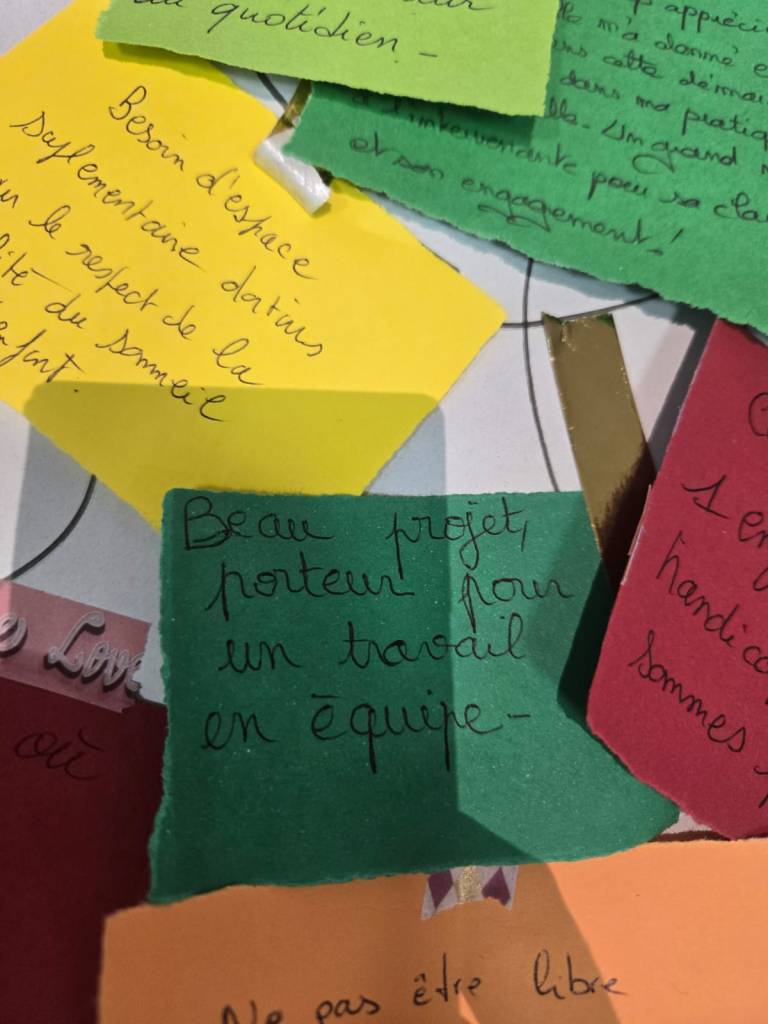 au quotidien -
appréci
m'a donné e
cette déma
dans ma pratiq
Un grand
l'intervenante pour sa cla
et son engagement!
Besoin d'espace
suplementaire dortoirs
le respect de la
du sommeil
Beau projet,
porteur pour
un travail
en équipe-
1 en
handica
sommes
Love
où
Ne pas être libre